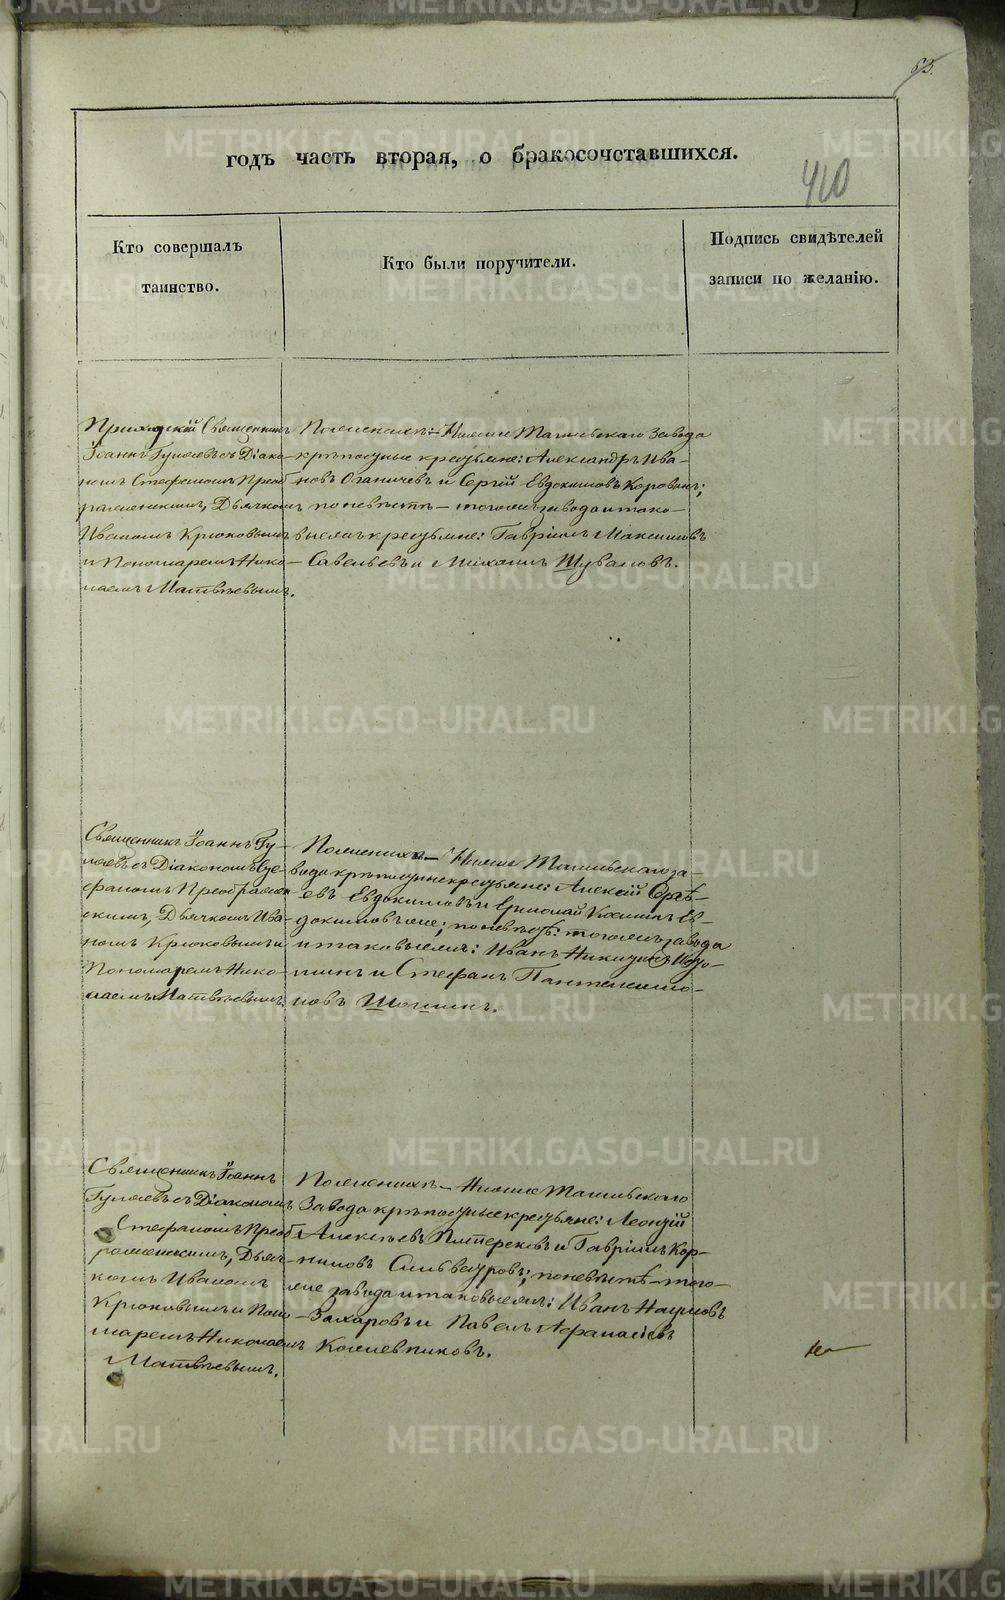 63.
годъ часть вторая, о бракосочетавшихся.
410
Кто совершалъ
таинство.
Кто были поручители.
Подпись свидѣтелей
записи по желанію.
Приходскій Священникъ
Іоаннъ Гуляевъ съ Діако-
номъ Стефаномъ Преоб
раженскимъ, Дьячкомъ
Иваномъ Крюковымъ
и Пономаремъ Нико-
лаемъ Матвѣевымъ.
По женихѣ: Нижне Тагильскаго Завода
крѣпостные крестьяне: Александръ Ива-
новъ и Сергій Евдокимовъ Коровинъ;
по невѣстѣ – тогожъ завода и тако-
выежъ крестьяне: Гавріилъ Максимовъ
Савельевъ и Михаилъ Шуваловъ.
Священникъ Іоаннъ Гу-
ляевъ съ Діакономъ Сте-
фаномъ Преображен
скимъ, Дьячкомъ Ива-
номъ Крюковымъ и
Пономаремъ Нико-
лаемъ Матвѣевымъ.
По женихѣ – Нижне Тагильскаго за-
вода крѣпостные крестьяне: Алексѣй
евъ Евдокимовъ и Ермолай Козминъ Ев-
докимовъ же; по невѣстѣ: тогожъ завода
и таковыежъ: Иванъ Никитинъ
шинъ и Стефанъ Пантелеимо-
новъ
Священникъ Іоаннъ
Гуляевъ съ Діакономъ
Стефаномъ Преоб
раженскимъ, Дьяч-
комъ Иваномъ
Крюковымъ и Поно-
маремъ Николаемъ
Матвѣевымъ.
По женихѣ – Нижне Тагильскаго
Завода крѣпостные крестьяне: Леонтій
Алексѣевъ и Гавріилъ Кор-
ниловъ; по невѣстѣ – того-
же завода и таковыежъ: Иванъ Наумовъ
Захаровъ и Павелъ Афанасіевъ
Кожевниковъ.
METRIKI.GASO-URAL.RU